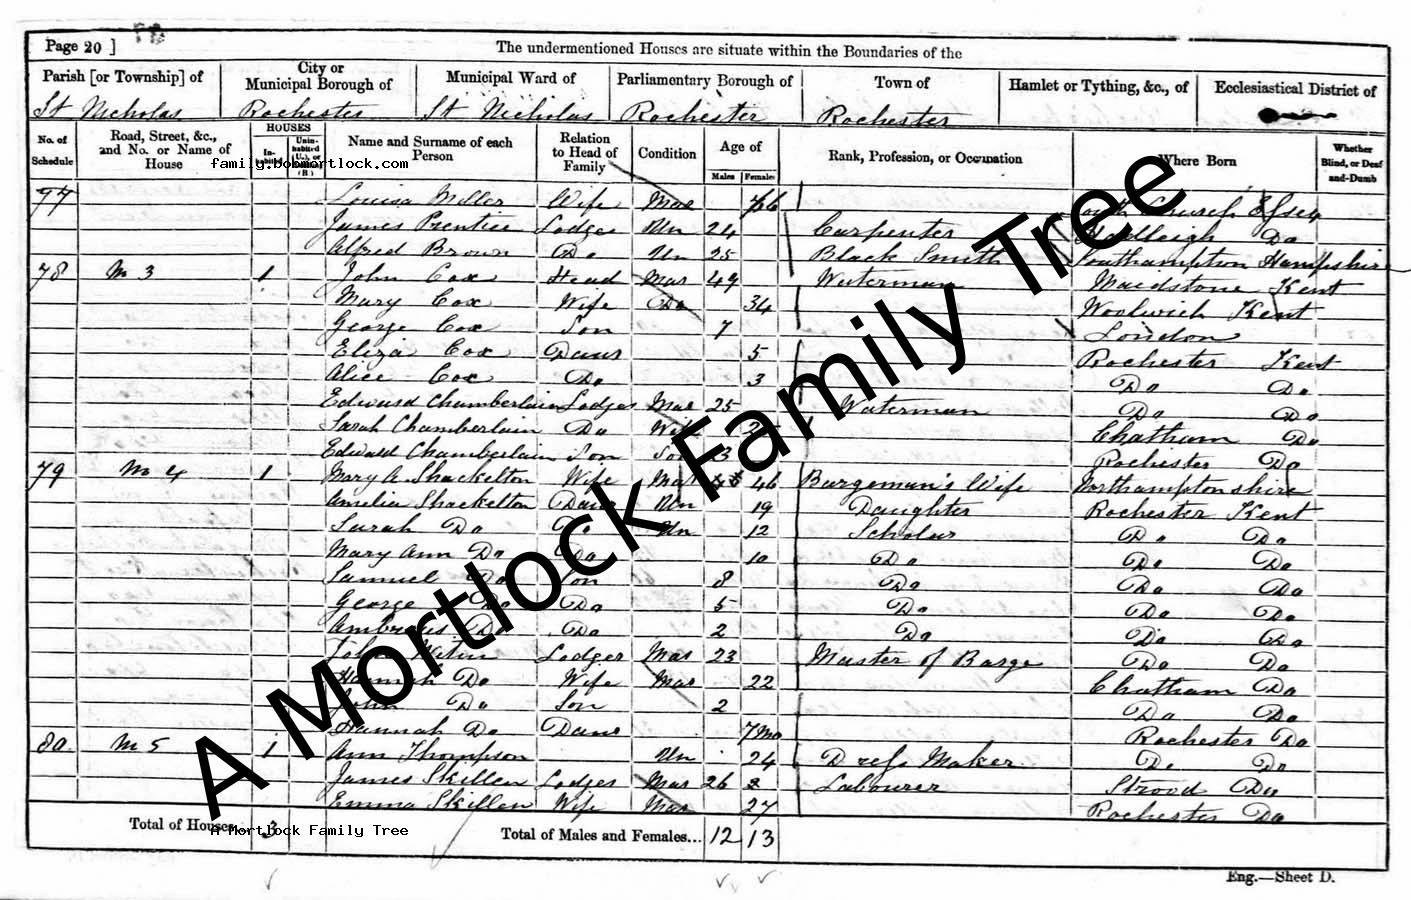 Page 20 ]
The undermentioned Houses are situate within the Boundaries of the
Parish [or Township] of City or Municipal Borough of Municipal Ward of Parliamentary Borough of Town of Hamlet or Tything, &c., of Ecclesiastical District of
St Nicholas Rochester St Nicholas Rochester Rochester
No. of Schedule Road, Street, &c., and No. or Name of House HOUSES In-habited Unin-habited (U.), or (B.) Name and Surname of each Person Relation to Head of Family Condition Age of Males Females Rank, Profession, or Occupation Where Born Whether Blind, or Deaf and-Dumb
family.bobmortlock.com
77 Louisa Miller Wife Mar 66 South Church Essex
James Prentice Lodger Un 24 Carpenter Hadleigh Do
Alfred Brown Do Un 25 Black Smith Southampton Hampshire
78 No 3 1 John Cox Head Mar 49 Waterman Maidstone Kent
Mary Cox Wife Do 34 Woolwich Kent
George Cox Son 7 London
Eliza Cox Daur 5 Rochester Kent
Alice Cox Do 3 Do Do
Edward Chamberlain Lodger Mar 25 Waterman Do Do
Sarah Chamberlain Do Wife Chatham Do
Edward Chamberlain Son Son 3 Rochester Do
79 No 4 1 Mary A. Shackelton Wife Mar 46 Bargeman's Wife Northamptonshire
Amelia Shackelton Daur Un 19 Daughter Rochester Kent
Sarah Do Do Un 12 Scholar Do Do
Mary Ann Do Do 10 Do Do Do
Samuel Do Son 8 Do Do Do
George Do Do 5 Do Do Do
Ambrous Do Do 2 Do Do Do
John Lodger Mar 23 Master of Barge Do Do
Hannah Do Wife Mar 22 Chatham Do
John Do Son 2 Do Do
Hannah Do Daur 7 Mo Rochester Do
80 No 5 1 Ann Thompson Un 24 Dress Maker Do Do
James Skillen Lodger Mar 26 Labourer Strood Do
Emma Skillen Wife Mar 27 Rochester Do
Total of Houses 3 Total of Males and Females... 12 13
A Mortlock Family Tree
Eng.—Sheet D.
A Mortlock Family Tree